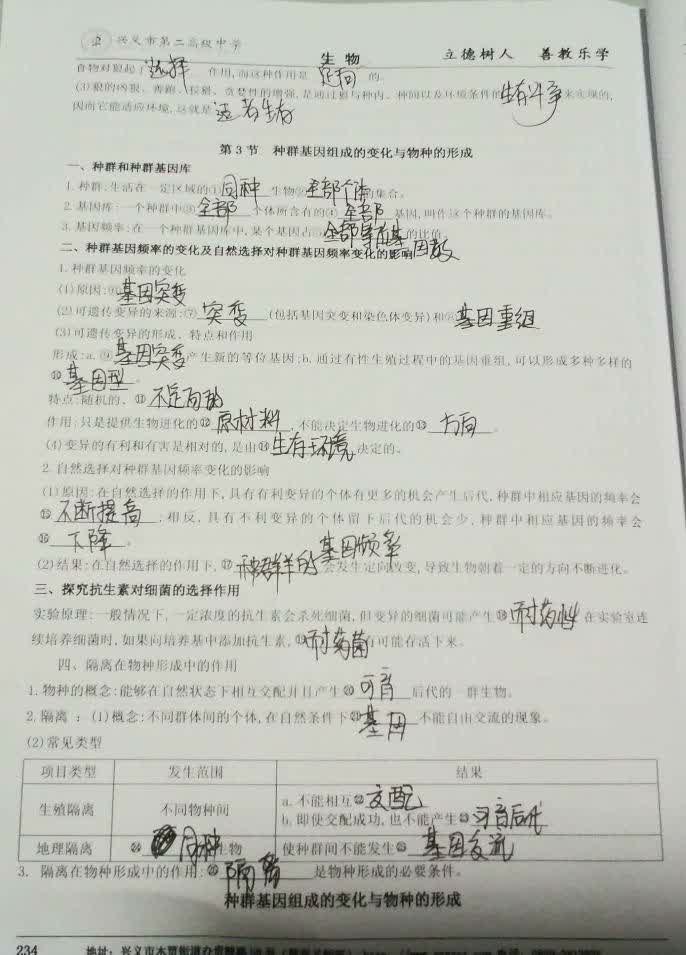 兴义市第二高级中学 生物 立德树人 善教乐学
食物对狼起了选择作用,而这种作用是定向的。
(3)狼的凶狠、善跑、狡猾、贪婪性的增强,是通过狼与种内、种间以及环境条件的生存斗争来实现的,
因而它能适应环境,这就是适者生存
第3节 种群基因组成的变化与物种的形成
一、种群和种群基因库
1.种群:生活在一定区域的①同种生物②全部个体的集合。
2.基因库:一个种群中③全部个体所含有的④全部基因,叫作这个种群的基因库。
3.基因频率:在一个种群基因库中,某个基因占⑤全部等位基因数的比值。
二、种群基因频率的变化及自然选择对种群基因频率变化的影响
1.种群基因频率的变化
(1)原因:⑥基因突变
(2)可遗传变异的来源:⑦突变(包括基因突变和染色体变异)和⑧基因重组
(3)可遗传变异的形成、特点和作用
形成:a.⑨基因突变产生新的等位基因;b.通过有性生殖过程中的基因重组,可以形成多种多样的
⑩基因型。
特点:随机的、⑪不定向的
作用:只是提供生物进化的⑫原材料,不能决定生物进化的⑬方向。
(4)变异的有利和有害是相对的,是由⑭生存环境决定的。
2.自然选择对种群基因频率变化的影响
(1)原因:在自然选择的作用下,具有有利变异的个体有更多的机会产生后代,种群中相应基因的频率会
⑮不断提高;相反,具有不利变异的个体留下后代的机会少,种群中相应基因的频率会
⑯下降。
(2)结果:在自然选择的作用下,⑰种群的基因频率会发生定向改变,导致生物朝着一定的方向不断进化。
三、探究抗生素对细菌的选择作用
实验原理:一般情况下,一定浓度的抗生素会杀死细菌,但变异的细菌可能产生⑱耐药性在实验室连
续培养细菌时,如果向培养基中添加抗生素,⑲耐药菌有可能存活下来。
四、隔离在物种形成中的作用
1.物种的概念:能够在自然状态下相互交配并且产生⑳可育后代的一群生物。
2.隔离:(1)概念:不同群体间的个体,在自然条件下㉑基因不能自由交流的现象。
(2)常见类型
项目类型 发生范围 结果
生殖隔离 不同物种间 a.不能相互㉒交配
b.即使交配成功,也不能产生㉓可育后代
地理隔离 ㉔同种生物 使种群间不能发生㉕基因交流
3.隔离在物种形成中的作用:㉖隔离是物种形成的必要条件。
种群基因组成的变化与物种的形成
234 地址:兴义市